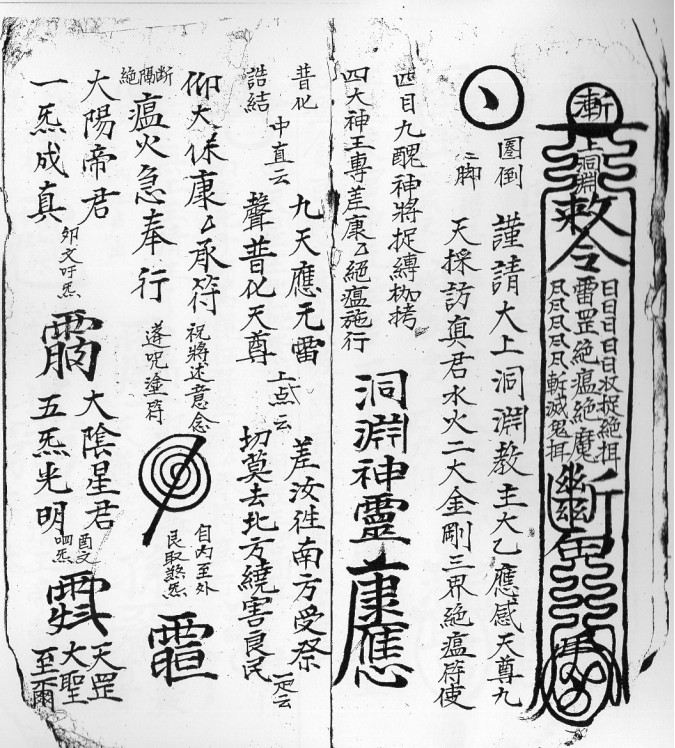 漸
上洞淵
敕令
日日日日日收捉絕
雷罡絕瘟絕魔
月月月月月斬滅鬼
斷
圈倒
二脚
謹請大上洞淵教主大乙應感天尊九
天採訪真君水火二大金剛三界絕瘟符使
四目九醜神將捉縛枷拷
四大神王專差康乙絕瘟施行
洞淵神靈康應
昔化
誥結
中直云
九天應元雷
聲普化天尊
上点云
差汝徃南方受祭
切莫去北方繞害良民
一画云
仰大保康乙承符
斷隔絕
瘟火急奉行
祝將述意念
遂呪塗符
自內至外
艮取煞炁
大陽帝君
一炁成真
卯文吁炁
大陰星君
五炁光明
酉文
呬炁
天罡
大聖
至爾